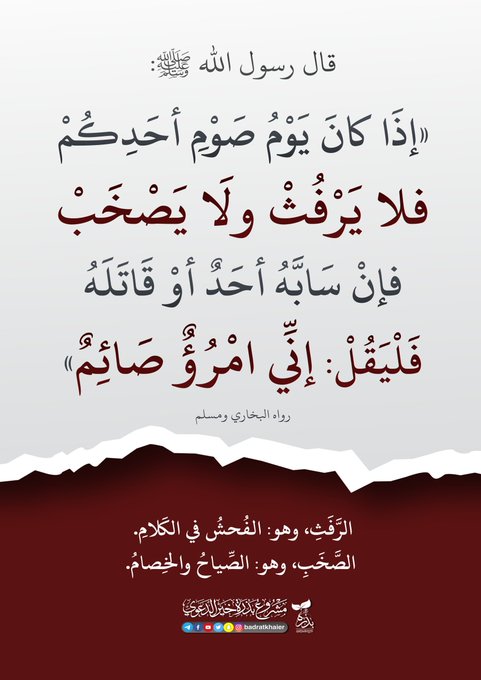 قال رسول الله ﷺ:
«إذَا كانَ يَوْمُ صَوْمِ أحَدِكُمْ
فلا يَرْفُثْ ولَا يَصْخَبْ
فإنْ سَابَّهُ أحَدٌ أوْ قَاتَلَهُ
فَلْيَقُلْ: إنِّي امْرُؤٌ صَائِمٌ»
رواه البخاري ومسلم
الرَّفَثِ، وهو: الفُحشُ في الكَلامِ.
الصَّخَبِ، وهو: الصِّياحُ والخِصامُ.
مشروع بذرة خير الدعوي
badratkhaier
بذرة